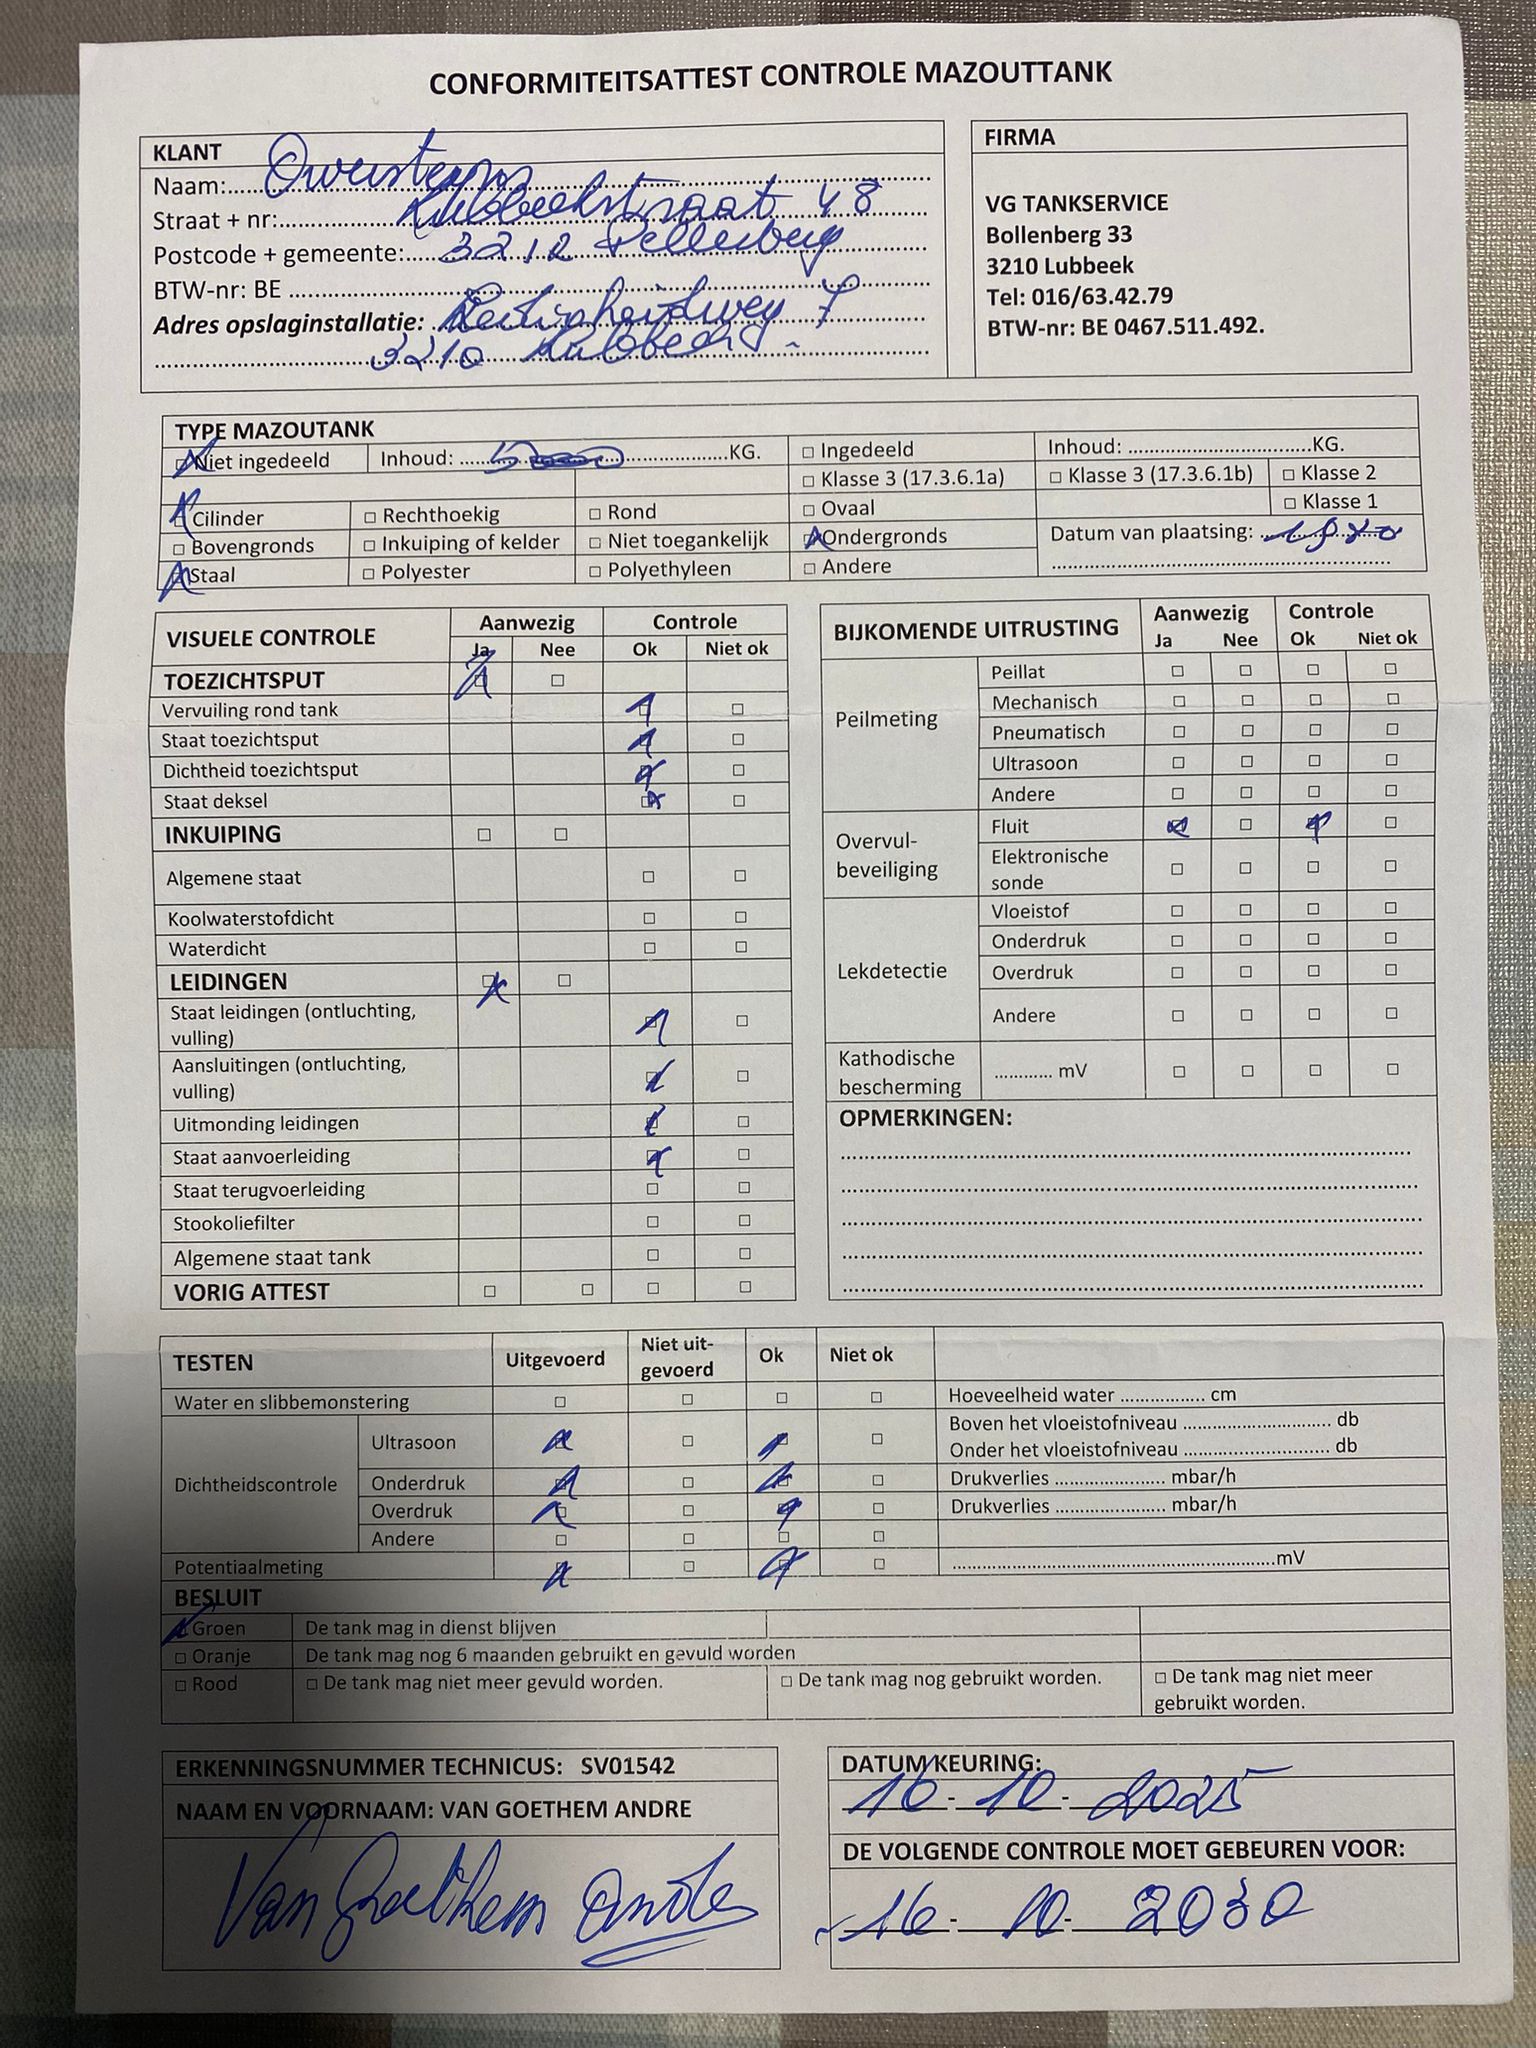 CONFORMITEITSATTEST CONTROLE MAZOUTTANK
KLANT
Naam:
Straat + nr: Lubbeekstraat 48
Postcode + gemeente: 3212 Pellenberg
BTW-nr: BE
Adres opslaginstallatie: 7
3210 Lubbeek
FIRMA
VG TANKSERVICE
Bollenberg 33
3210 Lubbeek
Tel: 016/63.42.79
BTW-nr: BE 0467.511.492.
TYPE MAZOUTANK
Niet ingedeeld Inhoud: KG. Ingedeeld Inhoud: KG.
Klasse 3 (17.3.6.1a) Klasse 3 (17.3.6.1b) Klasse 2
Cilinder Rechthoekig Rond Ovaal Klasse 1
Bovengronds Inkuiping of kelder Niet toegankelijk Ondergronds Datum van plaatsing:
Staal Polyester Polyethyleen Andere
VISUELE CONTROLE Aanwezig Controle
Ja Nee Ok Niet ok
TOEZICHTSPUT
Vervuiling rond tank
Staat toezichtsput
Dichtheid toezichtsput
Staat deksel
INKUIPING
Algemene staat
Koolwaterstofdicht
Waterdicht
LEIDINGEN
Staat leidingen (ontluchting,
vulling)
Aansluitingen (ontluchting,
vulling)
Uitmonding leidingen
Staat aanvoerleiding
Staat terugvoerleiding
Stookoliefilter
Algemene staat tank
VORIG ATTEST
BIJKOMENDE UITRUSTING Aanwezig Controle
Ja Nee Ok Niet ok
Peilmeting
Peillat
Mechanisch
Pneumatisch
Ultrasoon
Andere
Overvul-
beveiliging
Fluit
Elektronische
sonde
Lekdetectie
Vloeistof
Onderdruk
Overdruk
Andere
Kathodische
bescherming
............ mV
OPMERKINGEN:
TESTEN Uitgevoerd Niet uit-
gevoerd Ok Niet ok
Water en slibbemonstering Hoeveelheid water ................ cm
Dichtheidscontrole
Ultrasoon Boven het vloeistofniveau ............................ db
Onder het vloeistofniveau ............................ db
Onderdruk Drukverlies ..................... mbar/h
Overdruk Drukverlies ..................... mbar/h
Andere
Potentiaalmeting mV
BESLUIT
Groen De tank mag in dienst blijven
Oranje De tank mag nog 6 maanden gebruikt en gevuld worden
Rood De tank mag niet meer gevuld worden. De tank mag nog gebruikt worden. De tank mag niet meer
gebruikt worden.
ERKENNINGSNUMMER TECHNICUS: SV01542
NAAM EN VOORNAAM: VAN GOETHEM ANDRE
Van Goethem Andre
DATUM KEURING:
16-10-2025
DE VOLGENDE CONTROLE MOET GEBEUREN VOOR:
16-10-2030